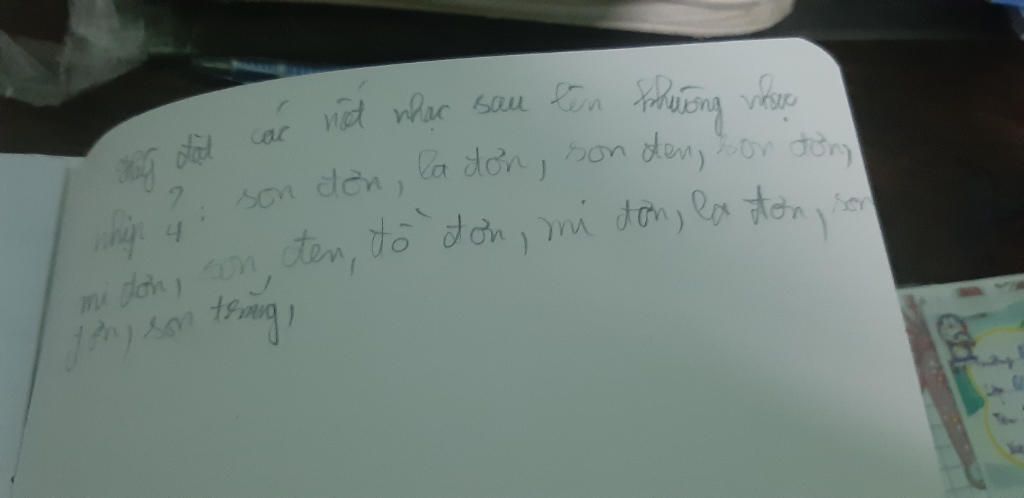 Hãy đặt các nốt nhạc sau lên khuông nhạc
nhịp 2/4: son đơn, la đơn, son đen, son đơn,
mi đơn, son, đen, đồ đơn, mi đơn, la đơn, son
đơn, son trắng,